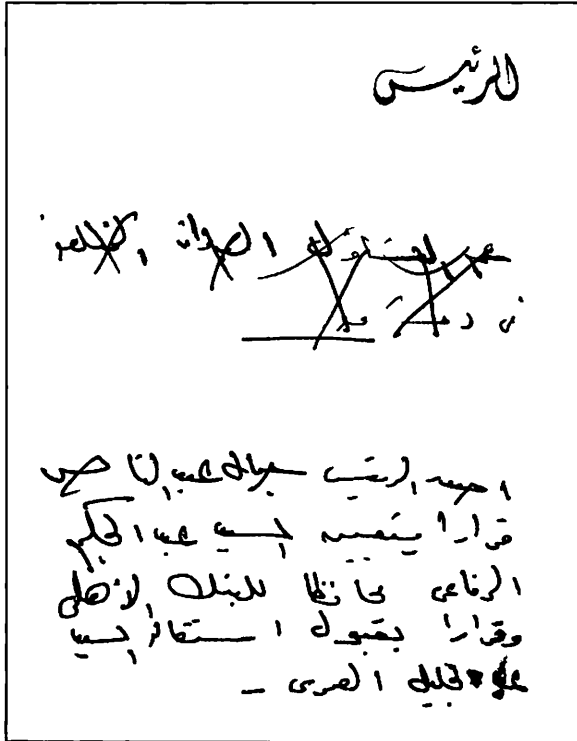 الرئيس
في دمشق
اصدر الرئيس جمال عبد الناصر
قرارا بتعيين السيد عبد الحكيم
الرفاعى محافظا للبنك الأهلى
وقرارا بقبول استقالة السيد
عبد الجليل العمرى -